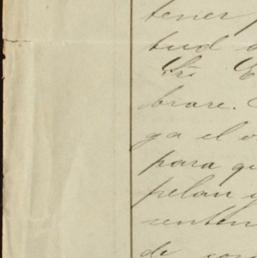 tener
tud
Srs
brare.
ga el
para qu
pelan
senten
de con